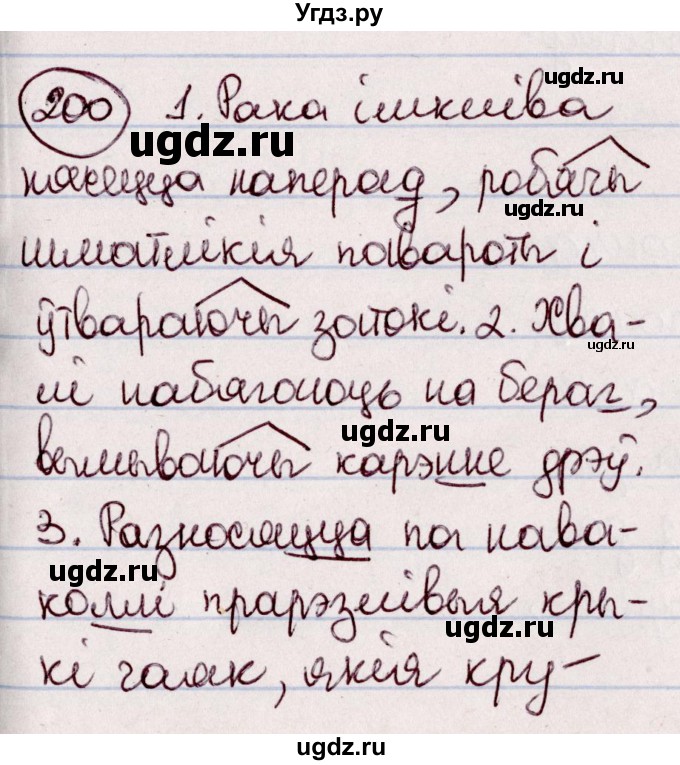 Угдз.ру
200 1. Рака імкліва
нясецца наперад, робячы
шматлікія павароты і
ўтвараючы затокі. 2. Хва-
лі набягаюць на бераг,
вымываючы карэнне дрэў.
3. Разносяцца па нава-
коллі прарэзлівыя кры-
кі галак, якія кру-
ugdz.ru
ugdz.ru
ugdz.ru
ugdz.ru
ugdz.ru
ugdz.ru
ugdz.ru
ugdz.ru